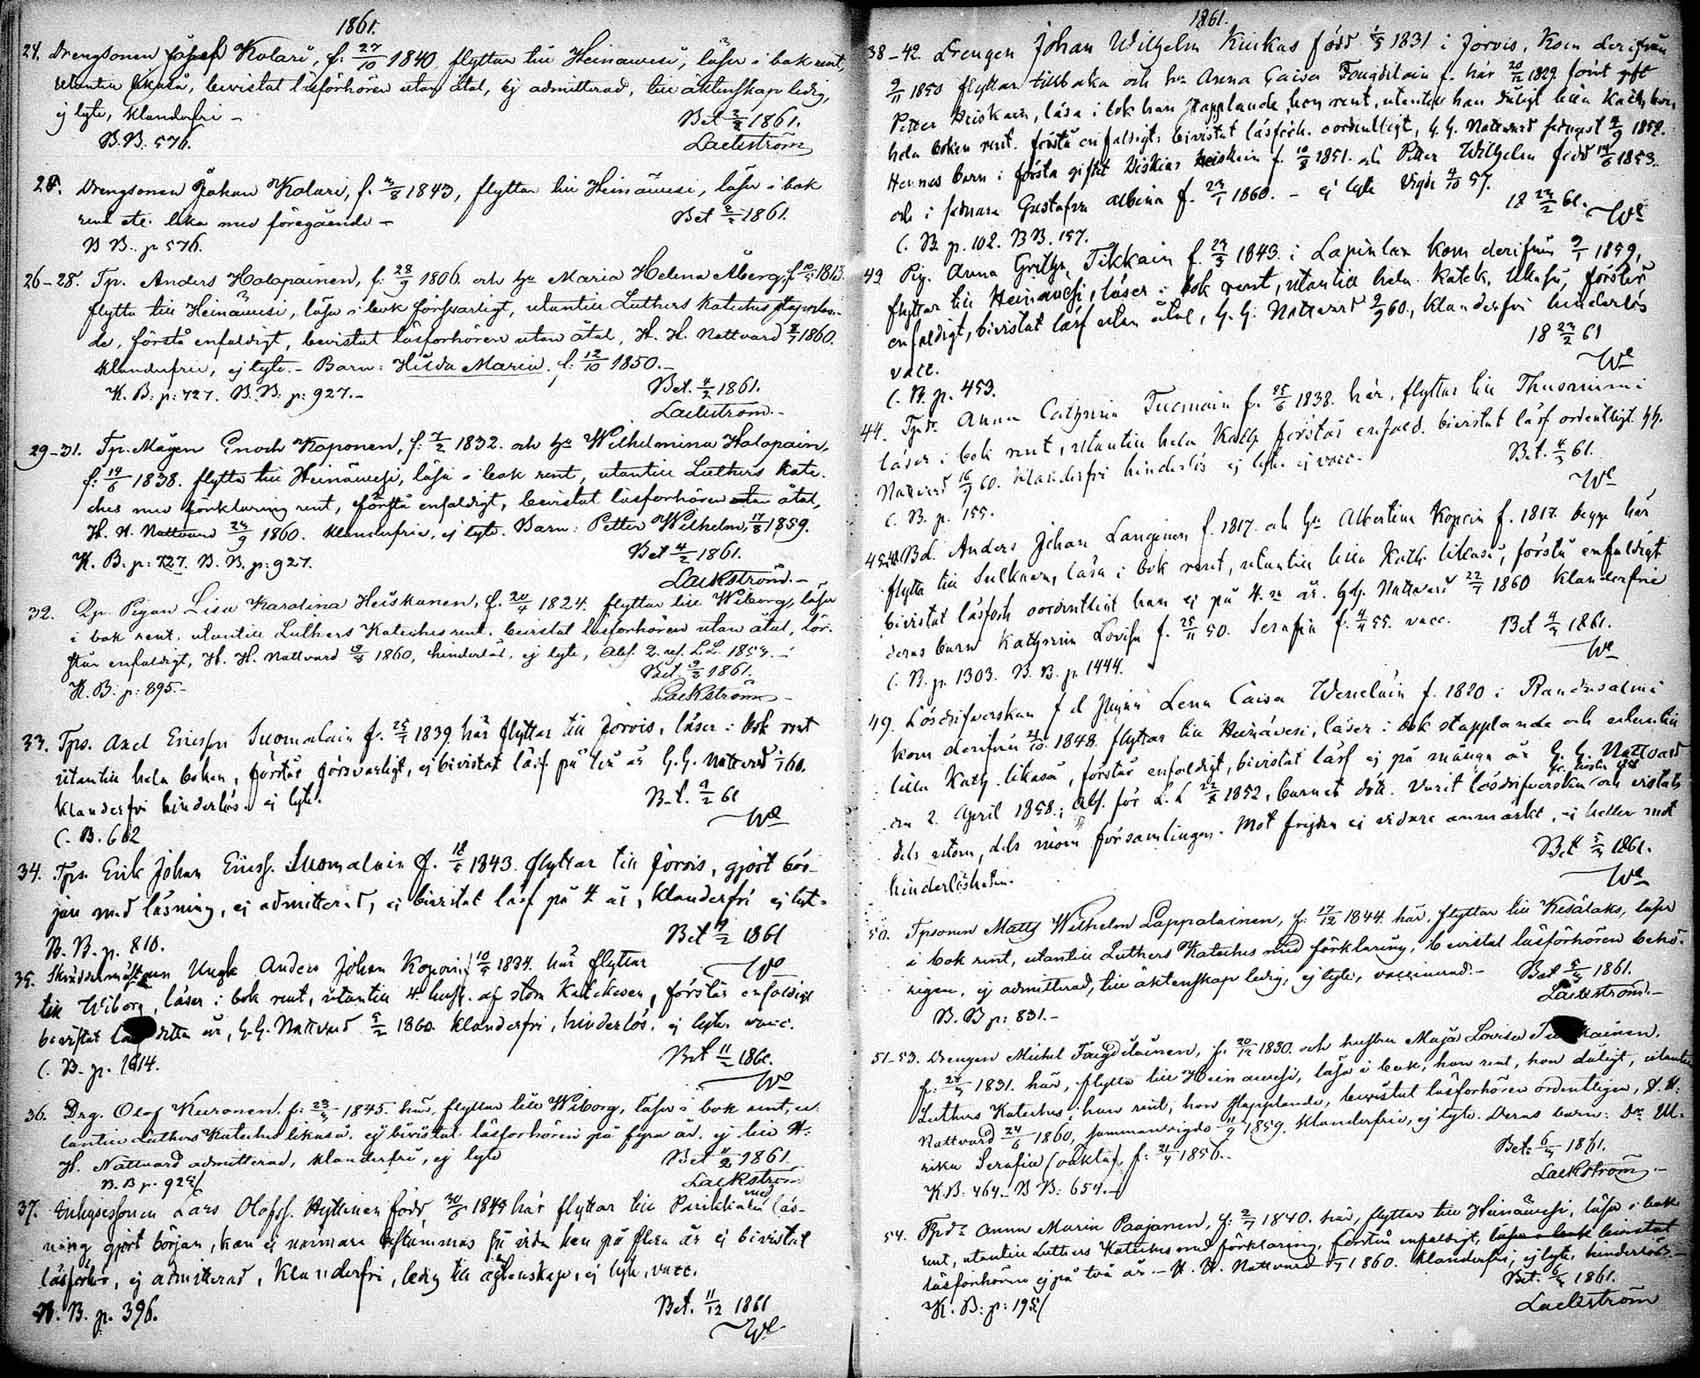 1861.
24. Drengsonen Josef Kolari, f. 27/10 1840, flyttar till Heinäwesi, läser i bok rent,
utantill likaså, bevistat läsförhören utan åtal, ej admitterad, till äktenskap ledig,
ej lyte, klanderfri –
Bet 2/2 1861.
B.B. 576.
Lackström
25. Drengsonen Johan Kolari, f. 3/8 1843, flyttar till Heinäwesi, läser i bok
rent etc. lika med föregående –
Bet 2/2 1861.
B B. p 576.
26–28. Tp. Anders Holopainen, f. 28/9 1806. och hu Maria Helena Åberg, f. 1813.
flytta till Heinäwesi, läsa i bok försvarligt, utantill Luthers Kateches staplan-
de, förstå enfaldigt, bevistat läsförhören utan åtal, H. H. Nattvard 1860.
klanderfria, ej lyte. – Barn: Hilda Maria, f. 12/10 1850. –
K. B. p: 727. B. B. p: 927. –
Bet. 2/2 1861.
Lackström. –
29–31. Tp. Mågen Enoch Koponen, f. 7/2 1832. och hu Wilhelmina Holopain,
f. 14/6 1838. flytta till Heinäwesi, läsa i bok rent, utantill Luthers Kate-
ches med förklaring rent, förstå enfaldigt, bevistat läsförhören utan åtal,
H. H. Nattvard 23/9 1860. klanderfria, ej lyte. Barn: Petter Wilhelm, 17/8 1859.
K. B. p: 727. B. B. p: 927.
Bet 4/2 1861.
Lackström. –
32. Pigan Lisa Karolina Heiskanen, f. 20/4 1824. flyttar till Wiborg, läser
i bok rent, utantill Luthers Kateches rent, bevistat läsförhören utan åtal, för-
står enfaldigt, H. H. Nattvard 1860, hinderlös, ej lyte, Abs. 2. res. L.L. 1853. –
Bet 9/2 1861.
K. B. p: 895. –
Lackström –
33. Tps. Axel Ericsson Suomalain f. 25/7 1839 här flyttar till Jorois, läser i bok rent
utantill hela boken, förstår försvarligt, ej bivistat läsf på två år H.H. Nattvard 60.
klanderfri hinderlös. ej lyte.
Bet. 9/2 61
C. B. 602
We
34. Tps. Erik Johan Ericss. Suomalain f. 1843 flyttar till Jorois, gjort bör-
jan med läsning, ej admitterad, ej bivistat läsf på 4 år, klanderfri ej lyt-
B. B. p. 810.
Bet 9/2 1861
We
35. Skräddarmäst Ungk Anders Johan Koponen 10/9 1834. här flyttar
till Wiborg, läser i bok rent, utantill 4 hufs. af stora Katekesen, förstår enfaldigt
bevistat detta år, H.H. Nattvard 5/2 1860. klanderfri, hinderlös, ej lyte. vacc.
C. B. p. 1614.
Bet 11/2 1861.
We
36. Drg. Olof Kuronen, f. 23/3 1845. här, flyttar till Wiborg, läser i bok rent, u-
tantill Luthers Kateches likaså, ej bevistat läsförhören på fyra år, ej till H.
H. Nattvard admitterad, klanderfri, ej lyte
Bet 11/2 1861.
B. B p. 925/
Lackström
37. Enkjesonen Lars Olofss. Hyttinen född 30/8 1845 här flyttar till Perikkala med läs-
ning gjort början, kan ej närmare bestämmas på flera år ej bivistat
läsförhör, ej admitterad, klanderfri, ledig till ägtenskap, ej lyte, vacc.
B. B. p. 396.
Bet. 11/12 1861
We
1861.
38–42. Drengen Johan Wilhelm Kiukas född 1/5 1831 i Jorois. kom derifrån
9/11 1850 flyttar tillbaka och hu Anna Caisa född här 20/12 1829 förut gift
Petter Heiskain, läsa i bok han stapplande hon rent, utantill han dåligt lilla Kath. hon
hela boken rent. förstå enfaldigt. bivistat läsförh. oordentligt, H. H. Nattvard sednast 1859.
Hennes barn i första giftet Heiskain f. 10/8 1851. och Petter Wilhelm född 14/6 1853.
och i sednare Gustafva Albina f. 23/1 1860. – ej lyte vigde 4/10 57.
18 23/2 61.
C. B. p. 102. B B. 157.
We
43. Pig. Anna Grithu Tikkain f. 23/3 1843. i Lapinlax kom derifrån 9/1 1859,
flyttar till Heinävesi, läser i bok rent, utantill hela Katek. likaså, förstår
enfaldigt, bivistat läsf utan åtal, H. H. Nattvard 60, klanderfri hinderlös
vacc.
18 23/2 61
C. B. p. 453.
We
44. Tpdr. Anna Cathrina Tuomain f. 25/6 1838. här, flyttar till
läser i bok rent, utantill hela Kath förstår enfald. bivistat läsf ordentligt. HH.
Nattvard 16/9 60. klanderfri hinderlös ej lyte. ej vacc.
Bet. 4/3 61.
C. B. p. 155.
We
Bd. Anders Johan Långinen f. 1817. och hu Albertina Kopoin f. 1817. begge här
flytta till Sulkava, läsa i bok rent, utantill lilla Kath likaså, förstå enfaldigt
bivistat läsförh oordentligt han ej på 4 år. H.H. Nattvard 22/7 1860 klanderfria
deras barn Kathrina Lovisa f. 25/11 50. Serafia f. 4/4 55. vacc.
Bet 4/3 1861.
C. B. p. 1303. B. B. p. 1444.
We
49. Lösdrifverskan f d pigan Lena Caisa Wenelain f. 1820 i Randasalmi
kom derifrån 1848. flyttar till Heinävesi, läser i bok stapplande och utantill
lilla Kath. likaså, förstår enfaldigt, bivistat läsf ej på många år H. H. Nattvard
den 2. April 1858., Abs. för L. L 1852, barnet dött. Varit lösdrifverska och vistats
dels utom, dels inom församlingen. Mot frejden ej vidare anmärkt, ej heller mot
hinderlösheten.
Bet 5/3 1861.
We
50. Tpsonen Matts Wilhelm Lappalainen, f. 17/12 1844. här, flyttar till Kesälaks, läser
i bok rent, utantill Luthers Kateches med förklaring, bevistat läsförhören behö-
rigen, ej admitterad, till äktenskap ledig, ej lyte, vaccinerad. –
Bet 5/3 1861.
B. B p: 831. –
Lackström. –
51–53. Drengen Michel f. 20/12 1830. och hustru Maja Lovisa
f. 27/3 1831. här, flytta till Heinäwesi, läsa i bok, han rent, hon dåligt, utantill
Luthers Kateches han rent, hon stapplande, bevistat läsförhören ordentligen, H. H.
Nattvard 24/6 1860, sammanvigda 1859. klanderfria, ej lyte. Deras barn: Dr. Ul-
rika Serafia (oäkta), f. 21/4 1856. –
Bet: 6/3 1861.
K.B: 464. – B B: 654. –
Lackström –
54. Tpdr Anna Maria Paajanen, f. 2/7 1840. här, flyttar till Heinäwesi, läser i bok
rent, utantill Luthers Kateches med förklaring, förstår enfaldigt, läser i bok bevistat
läsförhören ej på två år – H. H. Nattvard 1860. klanderfri, ej lyte, hinderlös. –
Bet. 6/3 1861.
K. B: p: 195/
Lackström